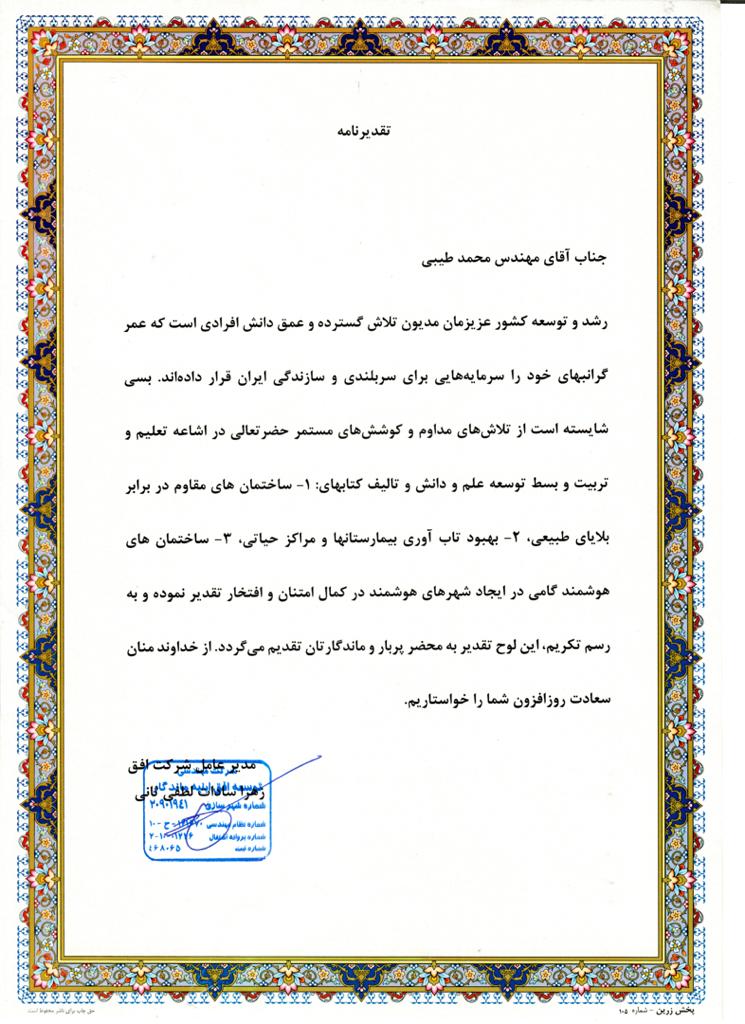 تقدیرنامه
جناب آقای مهندس محمد طیبی
رشد و توسعه کشور عزیزمان مدیون تلاش گسترده و عمق دانش افرادی است که عمر
گرانبهای خود را سرمایه‌هایی برای سربلندی و سازندگی ایران قرار داده‌اند. بسی
شایسته است از تلاش‌های مداوم و کوشش‌های مستمر حضرتعالی در اشاعه تعلیم و
تربیت و بسط توسعه علم و دانش و تالیف کتابهای: ۱- ساختمان های مقاوم در برابر
بلایای طبیعی، ۲- بهبود تاب آوری بیمارستانها و مراکز حیاتی، ۳- ساختمان های
هوشمند گامی در ایجاد شهرهای هوشمند در کمال امتنان و افتخار تقدیر نموده و به
رسم تکریم، این لوح تقدیر به محضر پربار و ماندگارتان تقدیم می‌گردد. از خداوند منان
سعادت روزافزون شما را خواستاریم.
مدیر عامل شرکت افق
شرکت مهندسی
توسعه افق ابنیه ماندگار
زهرا سادات لطفی ثانی
شماره شهرسازی ۲۰۹۰۱۹۴۱
شماره نظام مهندسی
شماره پروانه اشتغال
شماره ثبت ۴۶۸۰۶۵
پخش زرین - شماره ۱۰۵
حق چاپ برای ناشر محفوظ است